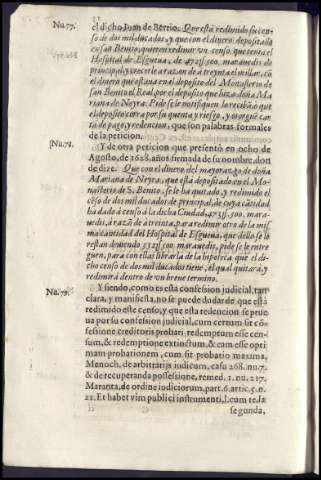 Nu. 77.
el dicho Iuan de Berrio: Que està redimido su censo
de dos mil ducados, y que con el dinero depositado
en san Benito, quieren redimir vn censo que tenia el
Hospital de Esgueua, de 473[.]500. marauedis de
principal, y vocerle a razon de a treynta el millar, cō
el dinero que estaua en el deposito del Monasterio de
san Benito el Real, por el deposito que hizo doña Mariana
de Neyra: Pide se le notifiquen le reciba, ò que
el deposito corra por su quenta y riesgo, y otorgue carta
de pago, y redencion, que son palabras formales
de la peticion.
Nu. 78.
Y de otra peticion que presentò en ocho de
Agosto, de 1628. años firmada de su nombre, donde
dize. Que con el dinero del mayorazgo de doña
Mariana de Neyra, que està depositado en el Monasterio
de S. Benito, se le ha quitado, y redimido el
cēso de dos mil ducados de principal, de cuya cātidad
ha dado à censo à la dicha Ciudad, 473[.]500. marauedis,
à razō de à treinta, para redimir otro de la misma
cantidad del Hospital de Esgueua, que dello se le
restan deuiendo 523[.]500. marauedis, pide se le entreguen,
para con ellas librarla de la hipoteca que el dicho
censo de dos mil ducados tiene, el qual quitara, y
redimirà dentro de vn breue termino.
Nu. 79.
Y siendo, como es esta confession judicial, tan
clara, y manifiesta, no se puede dudar de que està
redimido este censo, y que esta redencion se prueua
por su confession judicial, cum certum sit cōfessione
creditoris probari redemptum esse censum,
& redemptione extinctum, & eam esse optimam
probationem, cum sit probatio maxima,
Menoch. de arbitrarijs iudicum, casu 268. nu. 7.
& de recuperanda possessione, remed. 1. nu. 217.
Maranta, de ordine iudiciorum, part. 6. artic. 5. n.
21. Et habet vim publici instrumenti, l. cum te.
segunda,